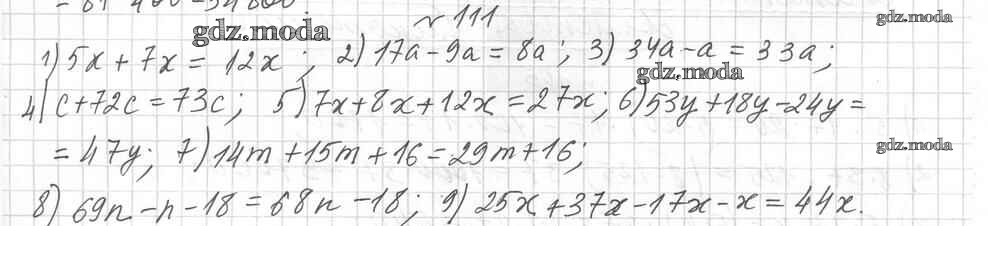 № 111
1) 5x + 7x = 12x ; 2) 17a - 9a = 8a ; 3) 34a - a = 33a ;
4) c + 72c = 73c ; 5) 7x + 8x + 12x = 27x ; 6) 53y + 18y - 24y =
= 47y ; 7) 14m + 15m + 16 = 29m + 16 ;
8) 69n - n - 18 = 68n - 18 ; 9) 25x + 37x - 17x - x = 44x.
gdz.moda
gdz.moda
gdz.moda
gdz.moda